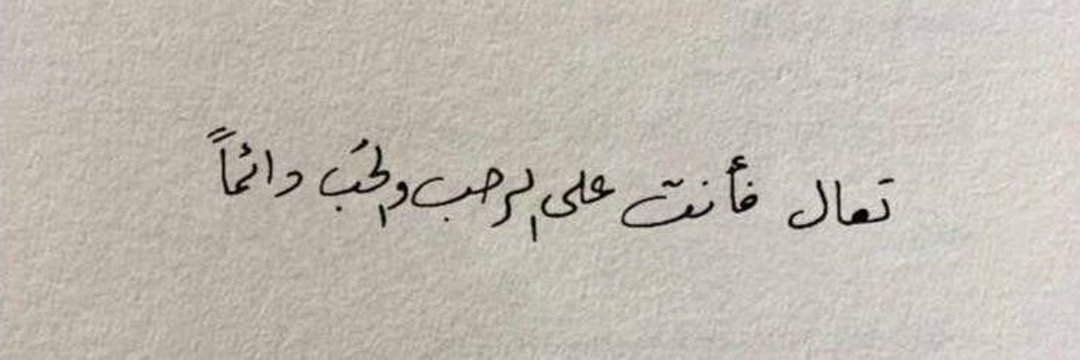 تعال فأنت على الرحب والحُب دائماً